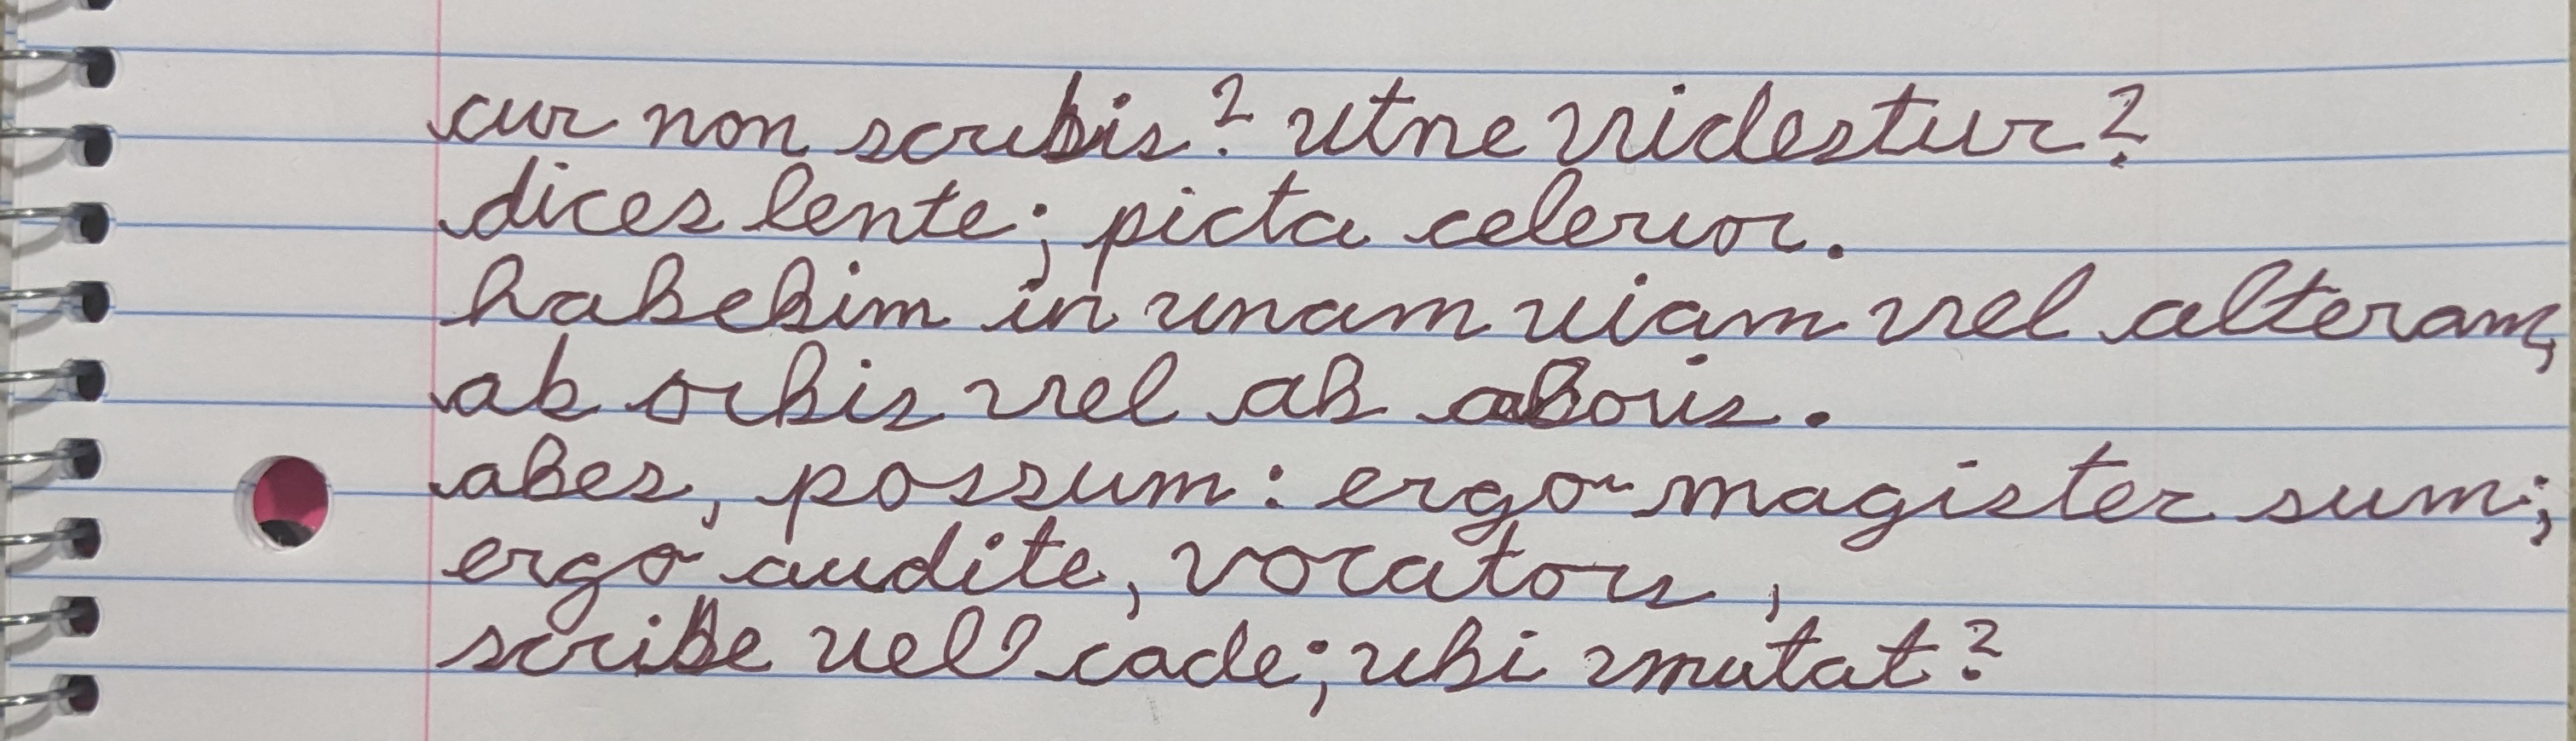 cur non scribis? utne videstur?
dices lente; picta celerior.
habebim in unam uiam vel alteram,
ab orbis vel ab aboris.
abes, possum: ergo magister sum;
ergo audite, vocatori,
scribe uel cade; ubi mutat?